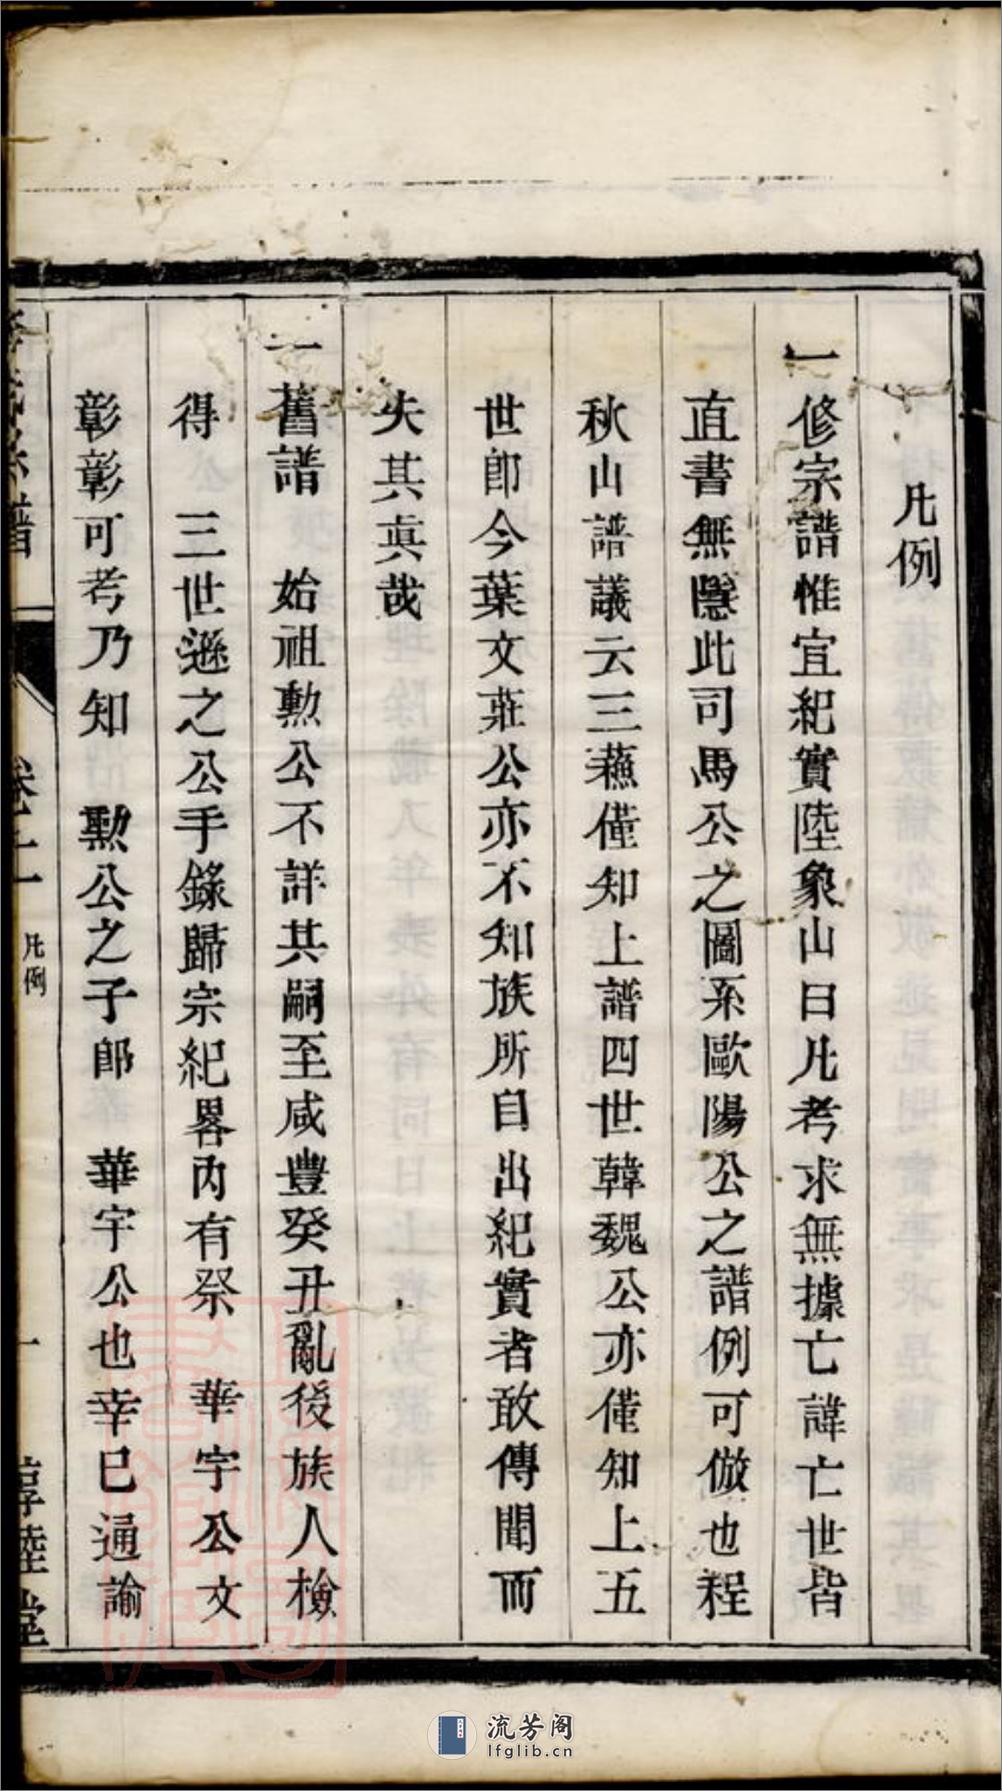 凡例
一修宗譜惟宜紀實陸象山曰凡考求無據亡諱亡世皆
直書無隱此司馬公之圖系歐陽公之譜例可倣也程
秋山譜議云三蘓僅知上譜四世韓魏公亦僅知上五
世郎今葉文莊公亦不知族所自出紀實者敢傳聞而
失其真哉
一舊譜 始祖勲公不詳其嗣至咸豐癸丑亂後族人檢
得 三世遜之公手錄歸宗紀畧內有祭 華宇公文
彰彰可考乃知 勲公之子郎 華宇公也幸巳通諭
宗譜 卷之一 凡例 一 惇睦堂
流芳阁
lfglib.cn